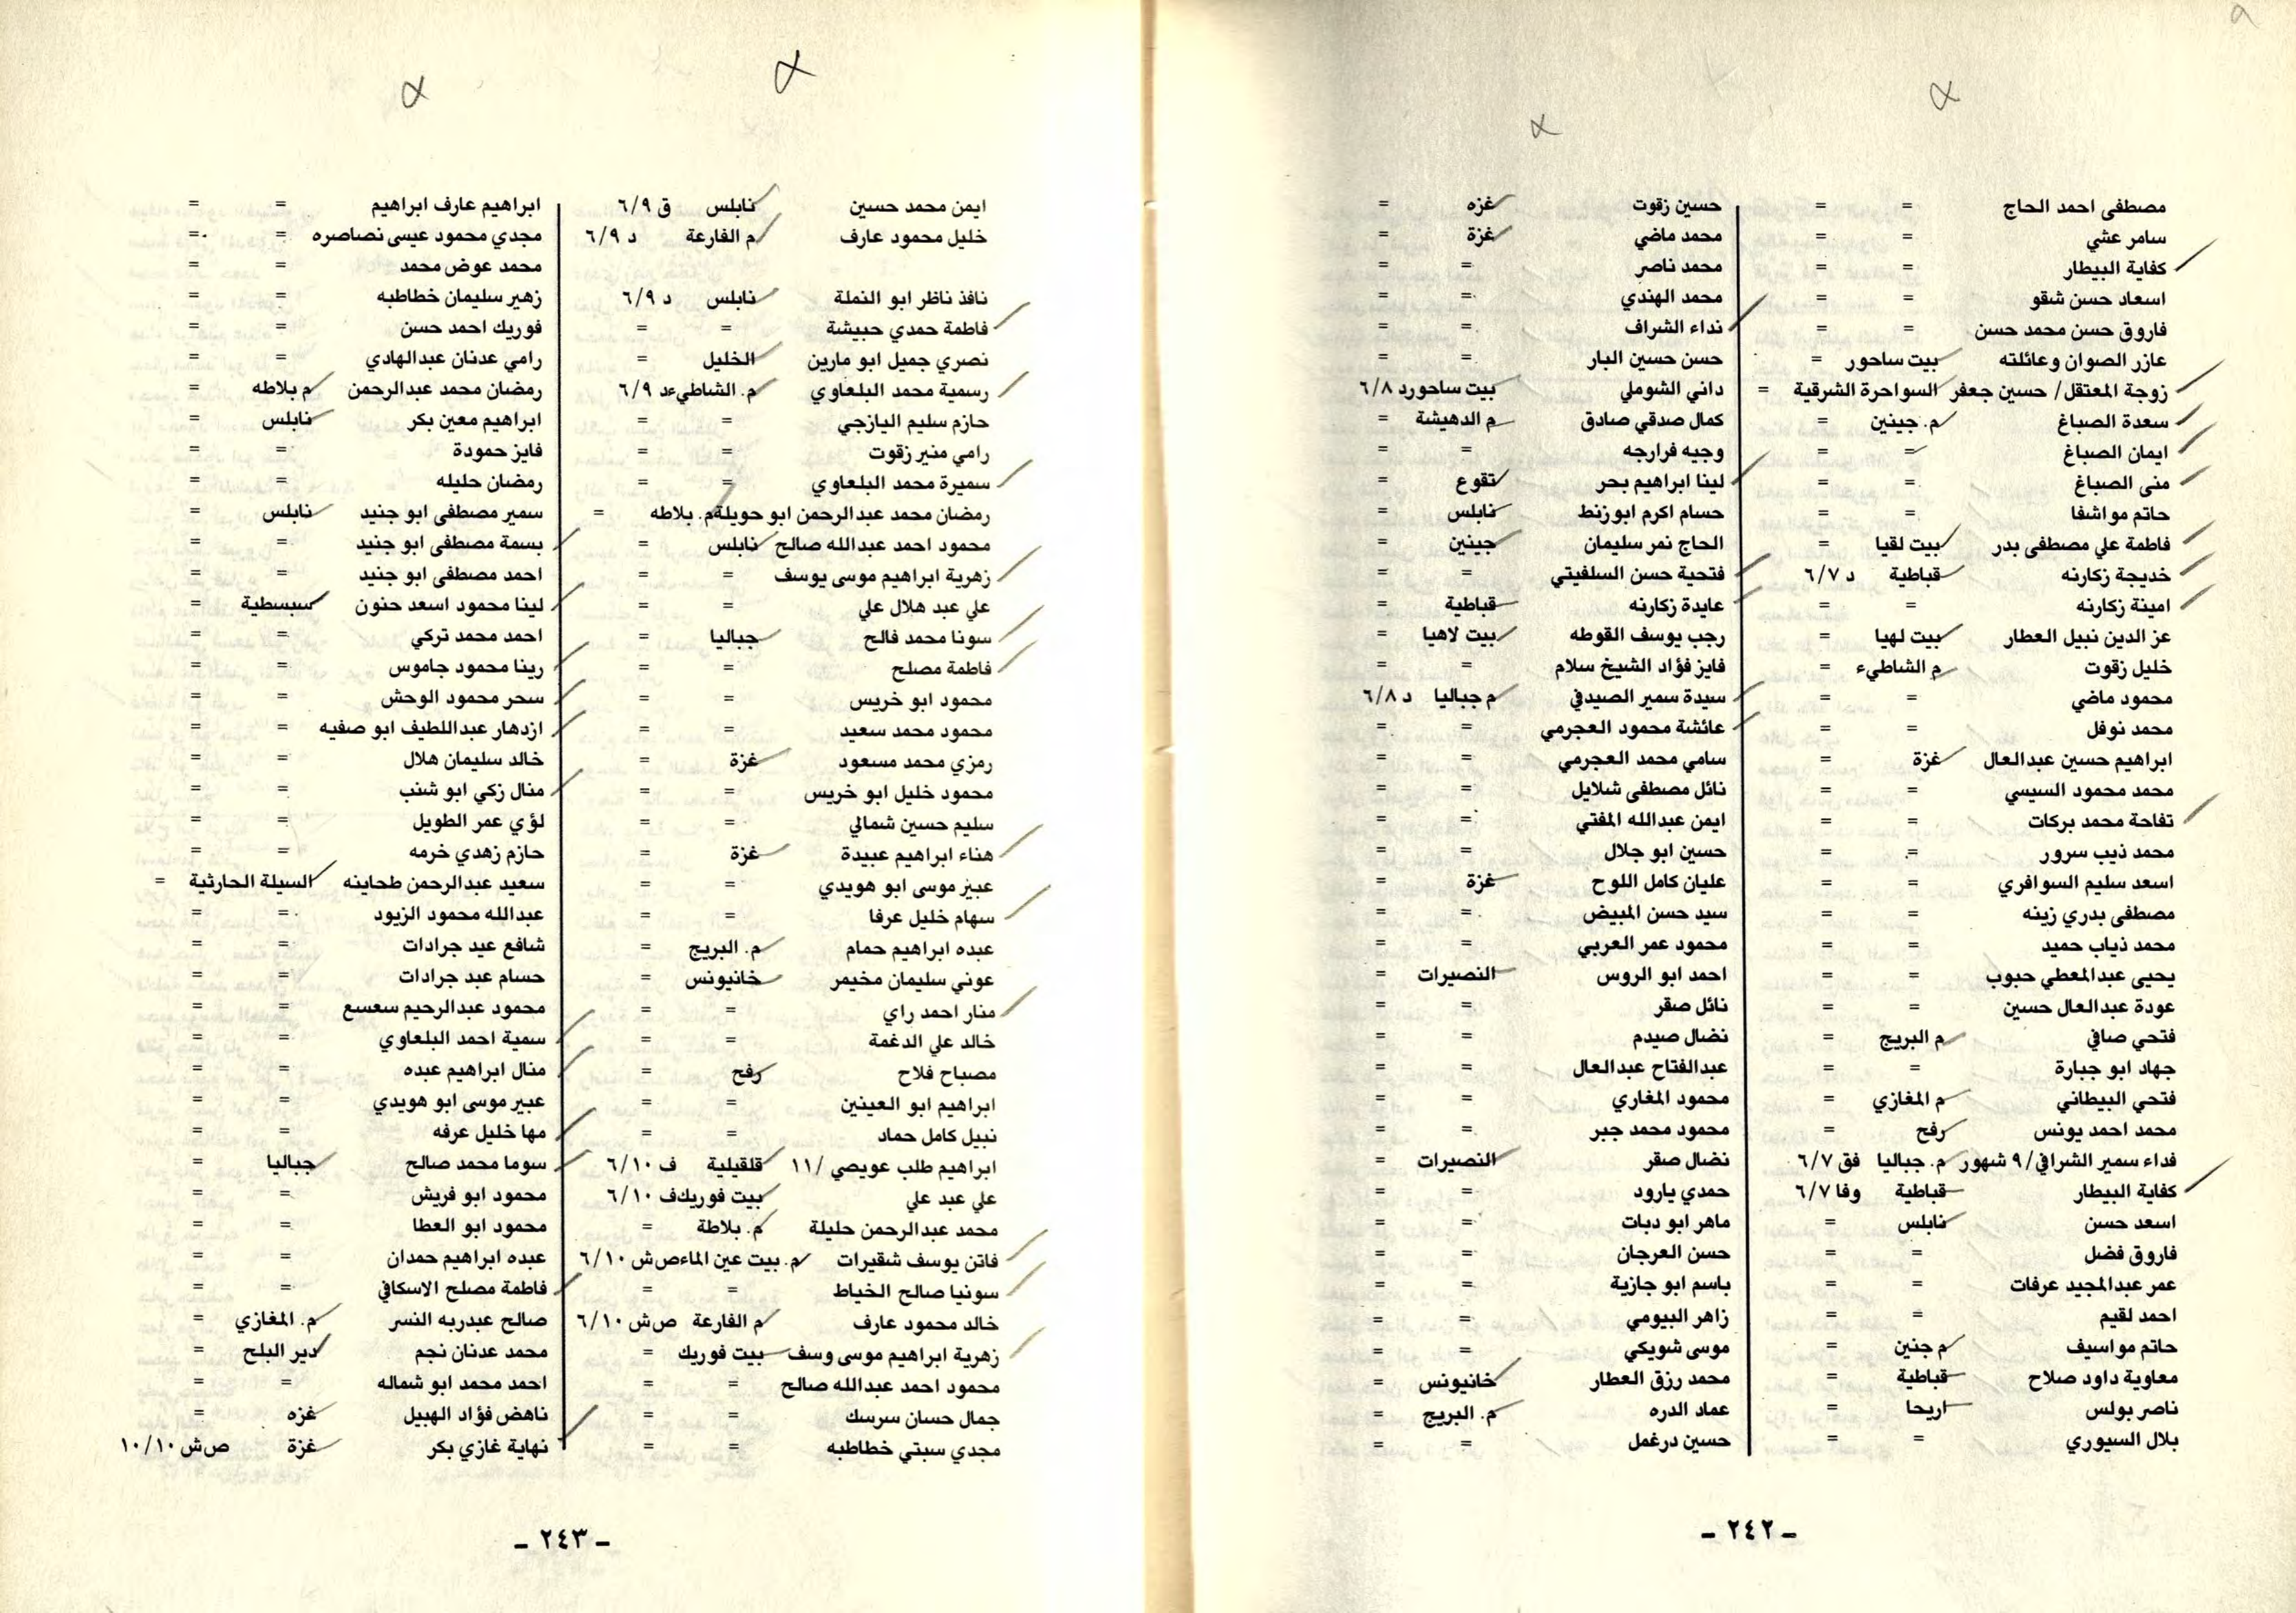 مصطفى احمد الحاج = =
سامر عشي = =
كفاية البيطار = =
اسعاد حسن شقو = =
فاروق حسن محمد حسن = =
عازر الصوان وعائلته بيت ساحور =
زوجة المعتقل/ حسين جعفر السواحرة الشرقية =
سعدة الصباغ م. جينين =
ايمان الصباغ = =
منى الصباغ = =
حاتم مواشفا = =
فاطمة علي مصطفى بدر بيت لقيا =
خديجة زكارنه قباطية د ٦/٧
امينة زكارنه = =
عز الدين نبيل العطار بيت لهيا =
خليل زقوت م الشاطىء =
محمود ماضي = =
محمد نوفل = =
ابراهيم حسين عبدالعال غزة =
محمد محمود السيسي = =
تفاحة محمد بركات = =
محمد ذيب سرور = =
اسعد سليم السوافري = =
مصطفى بدري زينه = =
محمد ذياب حميد = =
يحيى عبدالمعطي حبوب = =
عودة عبدالعال حسين = =
فتحي صافي م البريج =
جهاد ابو جبارة = =
فتحي البيطاني م المغازي =
محمد احمد يونس رفح =
فداء سمير الشرافي/ ٩ شهور م. جباليا فق ٦/٧
كفاية البيطار قباطية وفا ٦/٧
اسعد حسن نابلس =
فاروق فضل = =
عمر عبدالمجيد عرفات = =
احمد لقيم = =
حاتم مواسيف م جنين =
معاوية داود صلاح قباطية =
ناصر بولس اريحا =
بلال السيوري = =
حسين زقوت غزه =
محمد ماضي غزة =
محمد ناصر = =
محمد الهندي = =
نداء الشراف = =
حسن حسين البار = =
داني الشوملي بيت ساحورد ٦/٨
كمال صدقي صادق م الدهيشة =
وجيه فرارجه = =
لينا ابراهيم بحر تقوع =
حسام اكرم ابوزنط نابلس =
الحاج نمر سليمان جينين =
فتحية حسن السلفيتي = =
عايدة زكارنه قباطية =
رجب يوسف القوطه بيت لاهيا =
فايز فؤاد الشيخ سلام = =
سيدة سمير الصيدفي م جباليا د ٦/٨
عائشة محمود العجرمي = =
سامي محمد العجرمي = =
نائل مصطفى شلايل = =
ايمن عبدالله المفتي = =
حسين ابو جلال = =
عليان كامل اللوح غزة =
سيد حسن المبيض = =
محمود عمر العربي = =
احمد ابو الروس النصيرات =
نائل صقر = =
نضال صيدم = =
عبدالفتاح عبدالعال = =
محمود المغاري = =
محمود محمد جبر = =
نضال صقر النصيرات =
حمدي يارود = =
ماهر ابو دبات = =
حسن العرجان = =
باسم ابو جازية = =
زاهر البيومي = =
موسى شويكي = =
محمد رزق العطار خانيونس =
عماد الدره م. البريج =
حسين درغمل = =
- ٢٤٢ -
ايمن محمد حسين نابلس ق ٦/٩
خليل محمود عارف م الفارعة د ٦/٩
نافذ ناظر ابو النملة نابلس د ٦/٩
فاطمة حمدي حبيشة = =
نصري جميل ابو مارين الخليل =
رسمية محمد البلعاوي م. الشاطىءد ٦/٩
حازم سليم اليازجي = =
رامي منير زقوت = =
سميرة محمد البلعاوي = =
رمضان محمد عبدالرحمن ابو حويلةم. بلاطه =
محمود احمد عبدالله صالح نابلس =
زهرية ابراهيم موسى يوسف = =
علي عبد هلال علي = =
سونا محمد فالح جباليا =
فاطمة مصلح = =
محمود ابو خريس = =
محمود محمد سعيد = =
رمزي محمد مسعود غزة =
محمود خليل ابو خريس = =
سليم حسين شمالي = =
هناء ابراهيم عبيدة غزة =
عبير موسى ابو هويدي = =
سهام خليل عرفا = =
عبده ابراهيم حمام م. البريج =
عوني سليمان مخيمر خانيونس =
منار احمد راي = =
خالد علي الدغمة = =
مصباح فلاح رفح =
ابراهيم ابو العينين = =
نبيل كامل حماد = =
ابراهيم طلب عويصي /١١ قلقيلية ف ٦/١٠
علي عبد علي بيت فوريكف ٦/١٠
محمد عبدالرحمن حليلة م. بلاطة =
فاتن يوسف شقيرات م. بيت عين الماءص ش ٦/١٠
سونيا صالح الخياط = =
خالد محمود عارف م الفارعة ص ش ٦/١٠
زهرية ابراهيم موسى وسف بيت فوريك =
محمود احمد عبدالله صالح = =
جمال حسان سرسك = =
مجدي سبتي خطاطبه = =
ابراهيم عارف ابراهيم = =
مجدي محمود عيسى نصاصره = =
محمد عوض محمد = =
زهير سليمان خطاطبه = =
فوريك احمد حسن = =
رامي عدنان عبدالهادي = =
رمضان محمد عبدالرحمن م بلاطه =
ابراهيم معين بكر نابلس =
فايز حمودة = =
رمضان حليله = =
سمير مصطفى ابو جنيد نابلس =
بسمة مصطفى ابو جنيد = =
احمد مصطفى ابو جنيد = =
لينا محمود اسعد حنون سبسطية =
احمد محمد تركي = =
رينا محمود جاموس = =
سحر محمود الوحش = =
ازدهار عبداللطيف ابو صفيه = =
خالد سليمان هلال = =
منال زكي ابو شنب = =
لؤي عمر الطويل = =
حازم زهدي خرمه = =
سعيد عبدالرحمن طحاينه السيلة الحارثية =
عبدالله محمود الزيود = =
شافع عيد جرادات = =
حسام عبد جرادات = =
محمود عبدالرحيم سعسع = =
سمية احمد البلعاوي = =
منال ابراهيم عبده = =
عبير موسى ابو هويدي = =
مها خليل عرفه = =
سوما محمد صالح جباليا =
محمود ابو فريش = =
محمود ابو العطا = =
عبده ابراهيم حمدان = =
فاطمة مصلح الاسكافي = =
صالح عبدربه النسر م. المغازي =
محمد عدنان نجم دير البلح =
احمد محمد ابو شماله = =
ناهض فؤاد الهبيل غزه =
نهاية غازي بكر غزة ص ش ١٠/١٠
- ٢٤٣ -